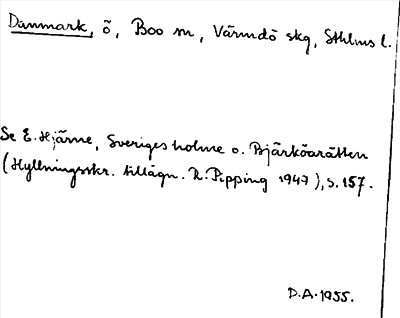 Danmark, ö, Boo sn, Värmdö skg, Sthlms l.
Se E. Hjärne, Sveriges holme o. Bjärköarätten
(Hyllningsskr. tillägn. R. Pipping 1947), s. 157.
D.A. 1955.